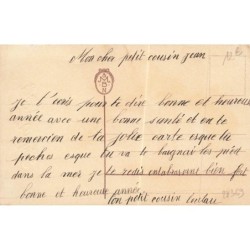 Mon cher petit cousin jean
je t'ecris pour te dire bonne et heureuse
année avec une bonne santé et en te
remercion de la jolie carte esque tu
peches esque tu va te baigner les pieds
dans la mer je te redis en tabrasent bien fort
bonne et heureuse année
ton petit cousin